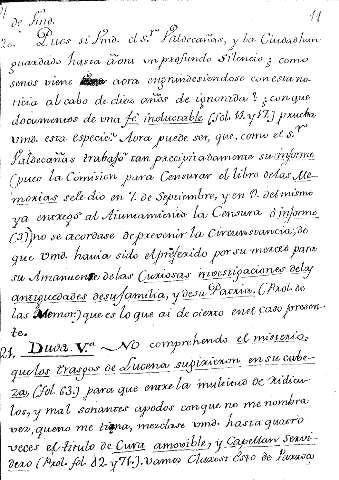 11
de Vmd.
20. Pues si Vmd. el s.r Valdecañas, y la Ciudad han
guardado hasta aora un profundo silencio; como
senos viene aora engrandesiendose con esta no-
ticia al cabo de diez años de ignorada? ¿con que
documentos de una fé indubitable (fol. 13. y 17.) prueba
vmd. esta especie? Aora puede ser, que como el s.r
Valdecañas trabajó tan precipitadamente su informe
(pues la Comision para Censurar el libro de las Me-
morias sele dio en 1. de Septiembre, y en 12. del mismo
ya entregó al Aiuntamiento la Censura ó informe
(3) no se acordase de prevenir la Circunstancia, de
que Vmd. havia sido el preferido por su merced para
su Amanuense de las Curiosas investigaciones de las
antiguedades de su familia, y de su Patria. (Prol. de
las Memor.) que es lo que ai de cierto en el caso presen-
te.
21. Duda V.a No comprehendo el misterio,
que los trasgos de Lucena supirieron en su cabe-
za (fol. 63.) para que entre la multitud de ridicu-
los, y mal sonantes apodos con que no me nombra
vez, que no me tizna, mezclase vmd. hasta quatro
veces el titulo de Cura amovible, y Capellan Servi-
dero (Prol. fol. 42. y 71.). Vamos Claros: Esto de Parrocos